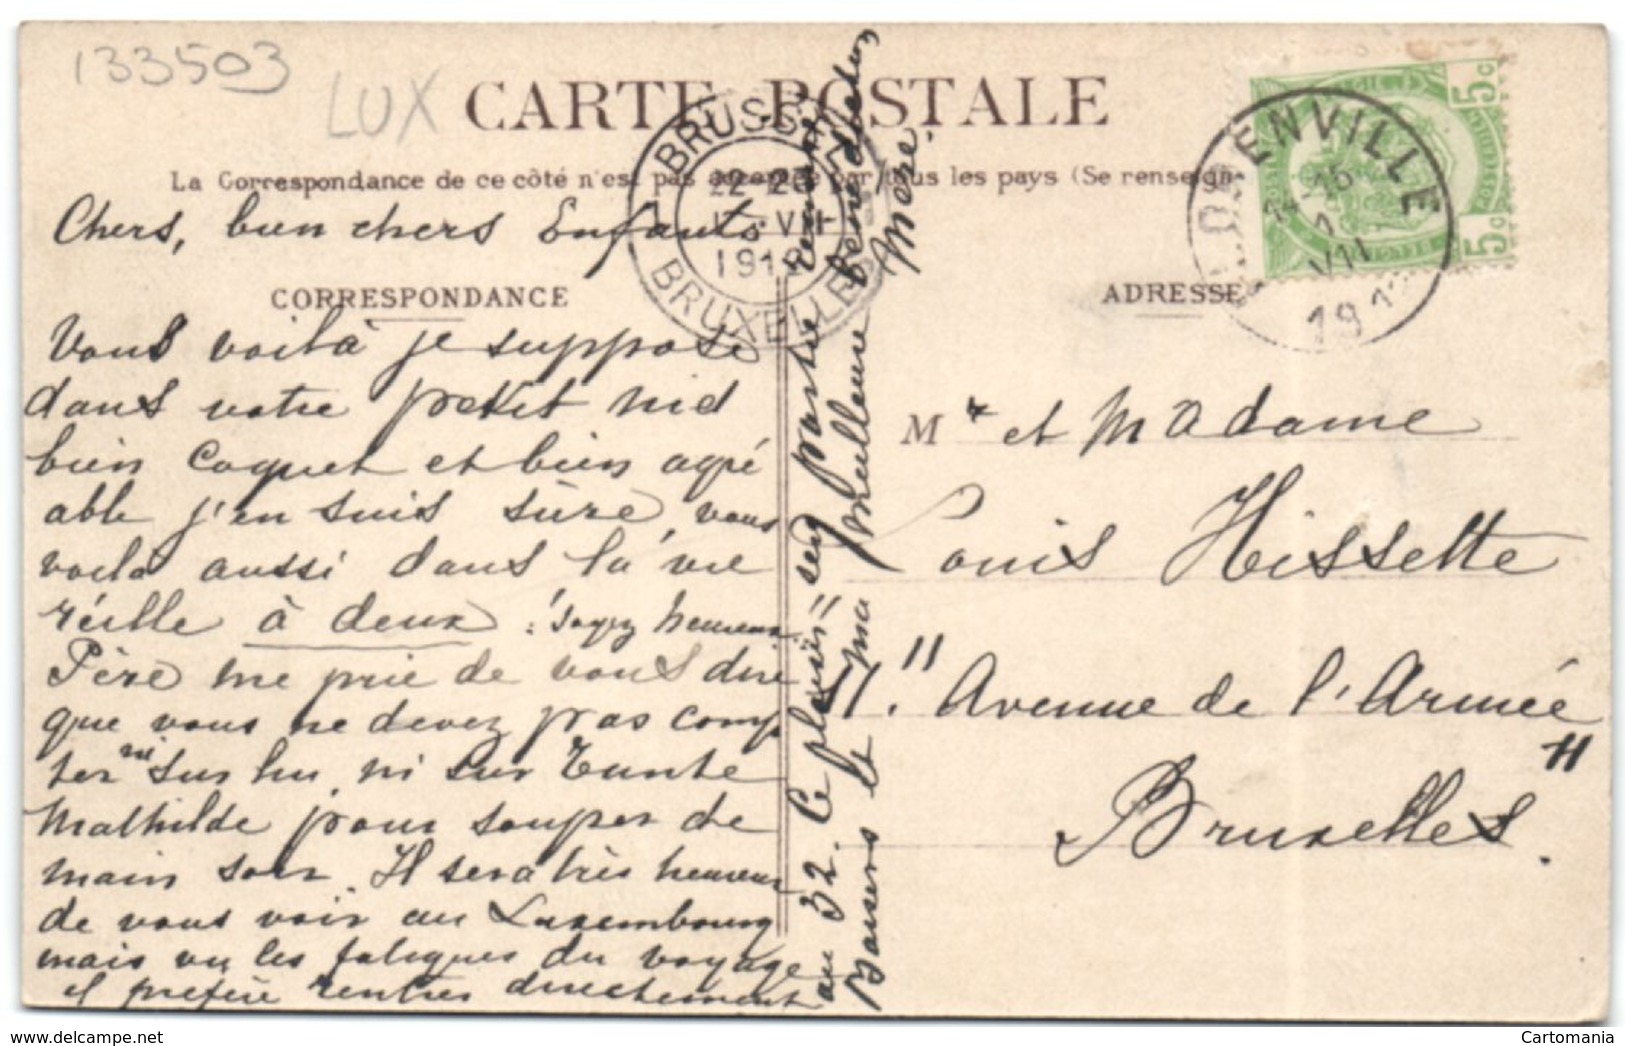 133503
LUX
CARTE POSTALE
La Correspondance de ce côté n'est pas acceptée par tous les pays (Se renseign
BRUSSEL
22-23
VII
1912
BRUXELLES
ENVILLE
14-15
VII
191
5c
5c
Chers, bien chers Enfants
CORRESPONDANCE
ADRESSE
Vous voilà je suppose
dans votre petit nid
bien coquet et bien agré
able j'en suis sûre, vous
voilà aussi dans la vie
réelle à deux : soyez heureux.
Père me prie de vous dire
que vous ne devez pas comp
ter ni sur lui, ni sur Tante
Mathilde pour souper de
main soir. Il sera très heureux
de vous voir au Luxembourg
mais vu les fatigues du voyage
il préfère rentrer directement
au 32. Ce plaisir sera partie remise
Baisers et ma meilleure Bénédiction
Mère.
Mr et Madame
Louis Hissette
11. "Avenue de l'Armée"
Bruxelles.
Delcampe.net
Cartomania